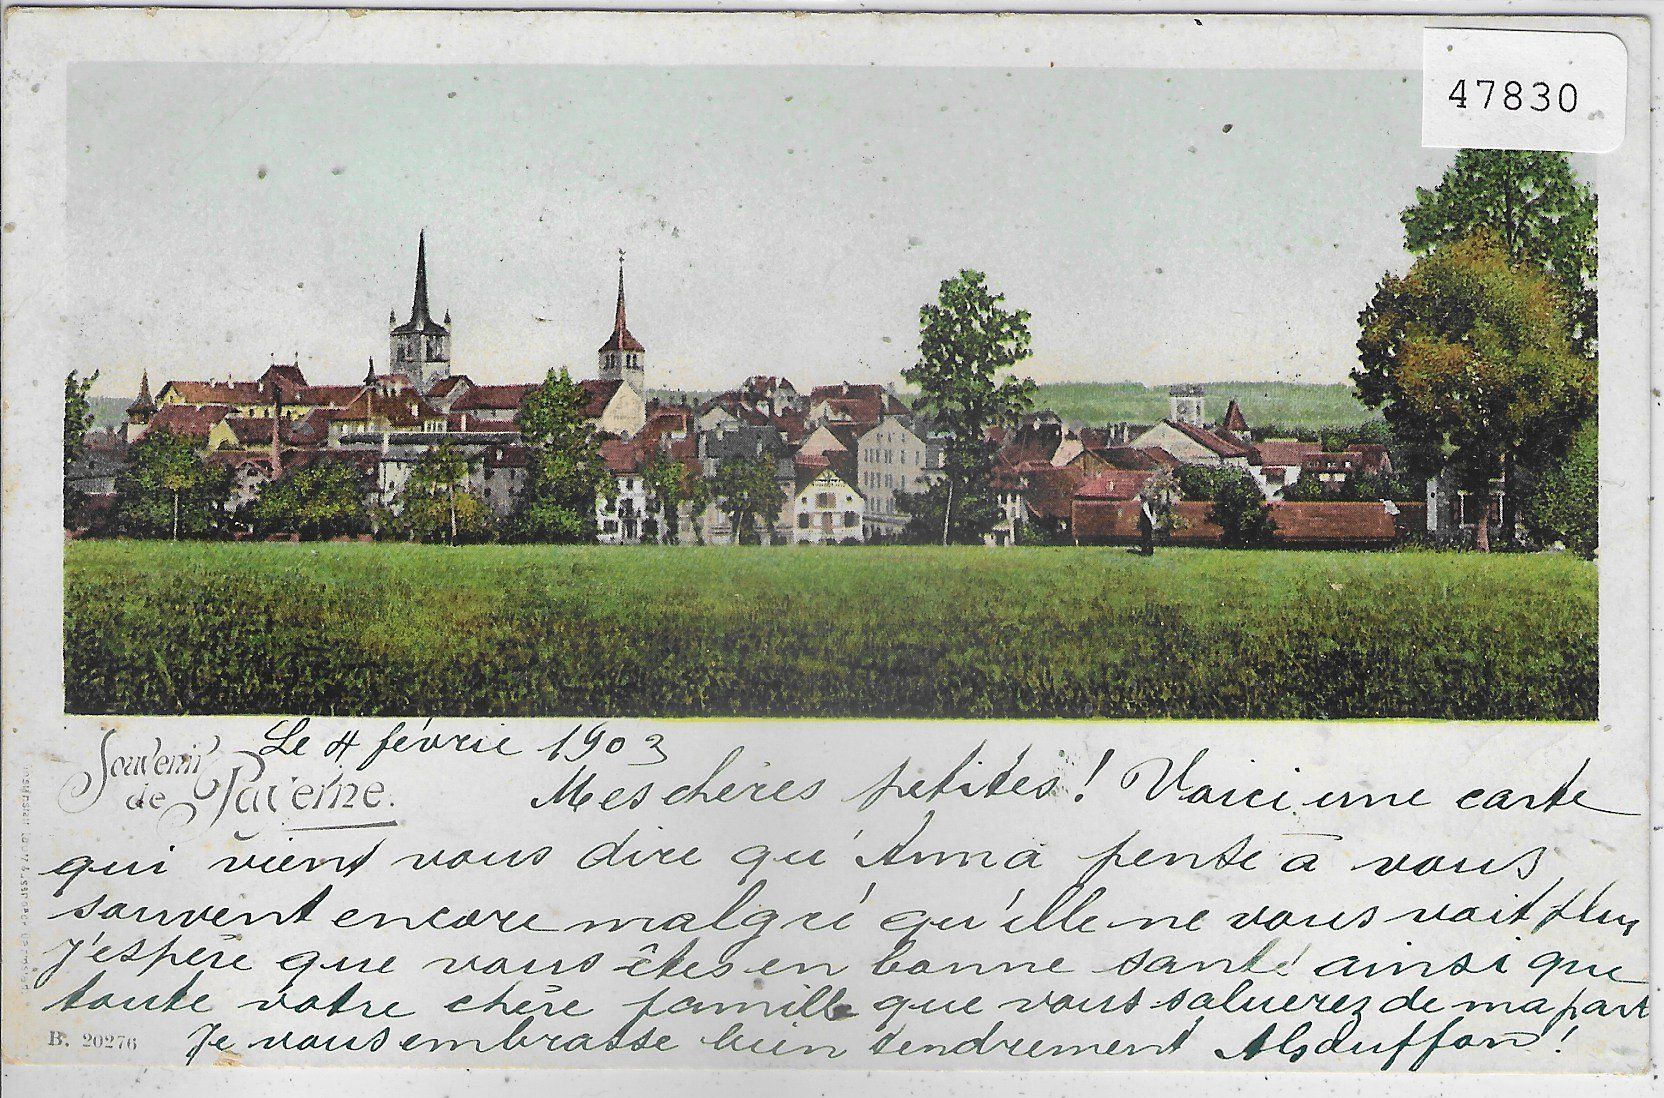 47830
Le 4 février 1903
Souvenir
de Payerne.
Mes chères petites! Voici une carte
qui vient vous dire qu'Anna pense à vous
souvent encore malgré qu'elle ne vous voit plus
j'espère que vous êtes en bonne santé ainsi que
toute votre chère famille que vous saluerez de ma part
B. 20276
Je vous embrasse bien tendrement